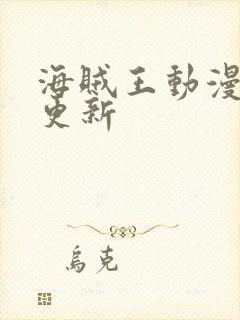 海贼王動漫
更新
烏克